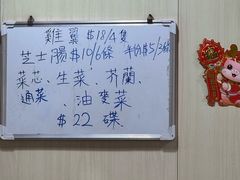 雞翼 $18/4隻
芝士腸$10/6條 半份$5/3條
菜芯、生菜、芥蘭、
通菜、油麥菜
$22碟